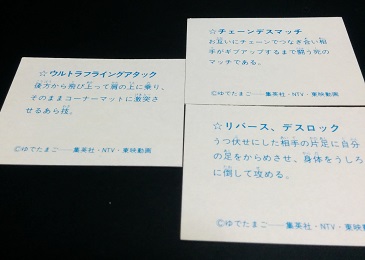 ☆チェーンデスマッチ
お互いにチェーンでつなぎ合い相
手がギブアップするまで闘う死の
マッチである。
©ゆでたまご──集英社・NTV・東映動画
☆ウルトラフライングアタック
後方から飛び上って肩の上に乗り、
そのままコーナーマットに激突さ
せるあら技。
©ゆでたまご──集英社・NTV・東映動画
☆リバース、デスロック
うつ伏せにした相手の片足に自分
の足をからめさせ、身体をうしろ
に倒して攻める。
©ゆでたまご──集英社・NTV・東映動